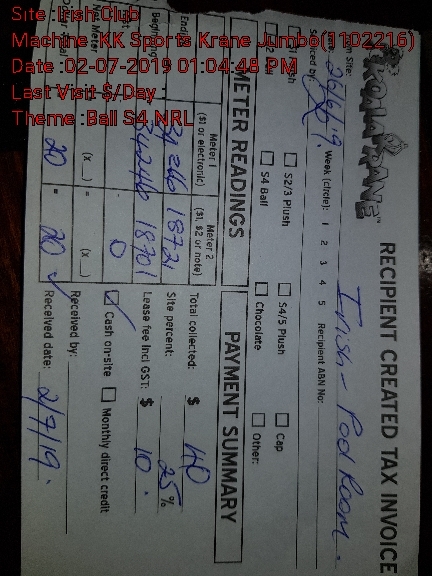 Site :Irish Club
Machine :KK Sports Krane Jumbo(1102216)
Date :02-07-2019 01:04:48 PM
Last Visit $/Day :
Theme :Ball S4 NRL
KOALA KRANE™
RECIPIENT CREATED TAX INVOICE
Site: Irish - Pool Room.
26/6/19. Week (circle): 1 2 3 4 5 Recipient ABN No:
S2/3 Plush S4/5 Plush Cap
S4 Ball Chocolate Other:
METER READINGS
Meter 1 ($1 or electronic) Meter 2 ($1, $2 or note)
34266 18721
34246 18701
0
(x __) = (x __)
20 = 20
PAYMENT SUMMARY
Total collected: $ 40
Site percent: 25%
Lease fee Incl GST: $ 10.
Cash on-site Monthly direct credit
Received by:
Received date: 2/7/19.